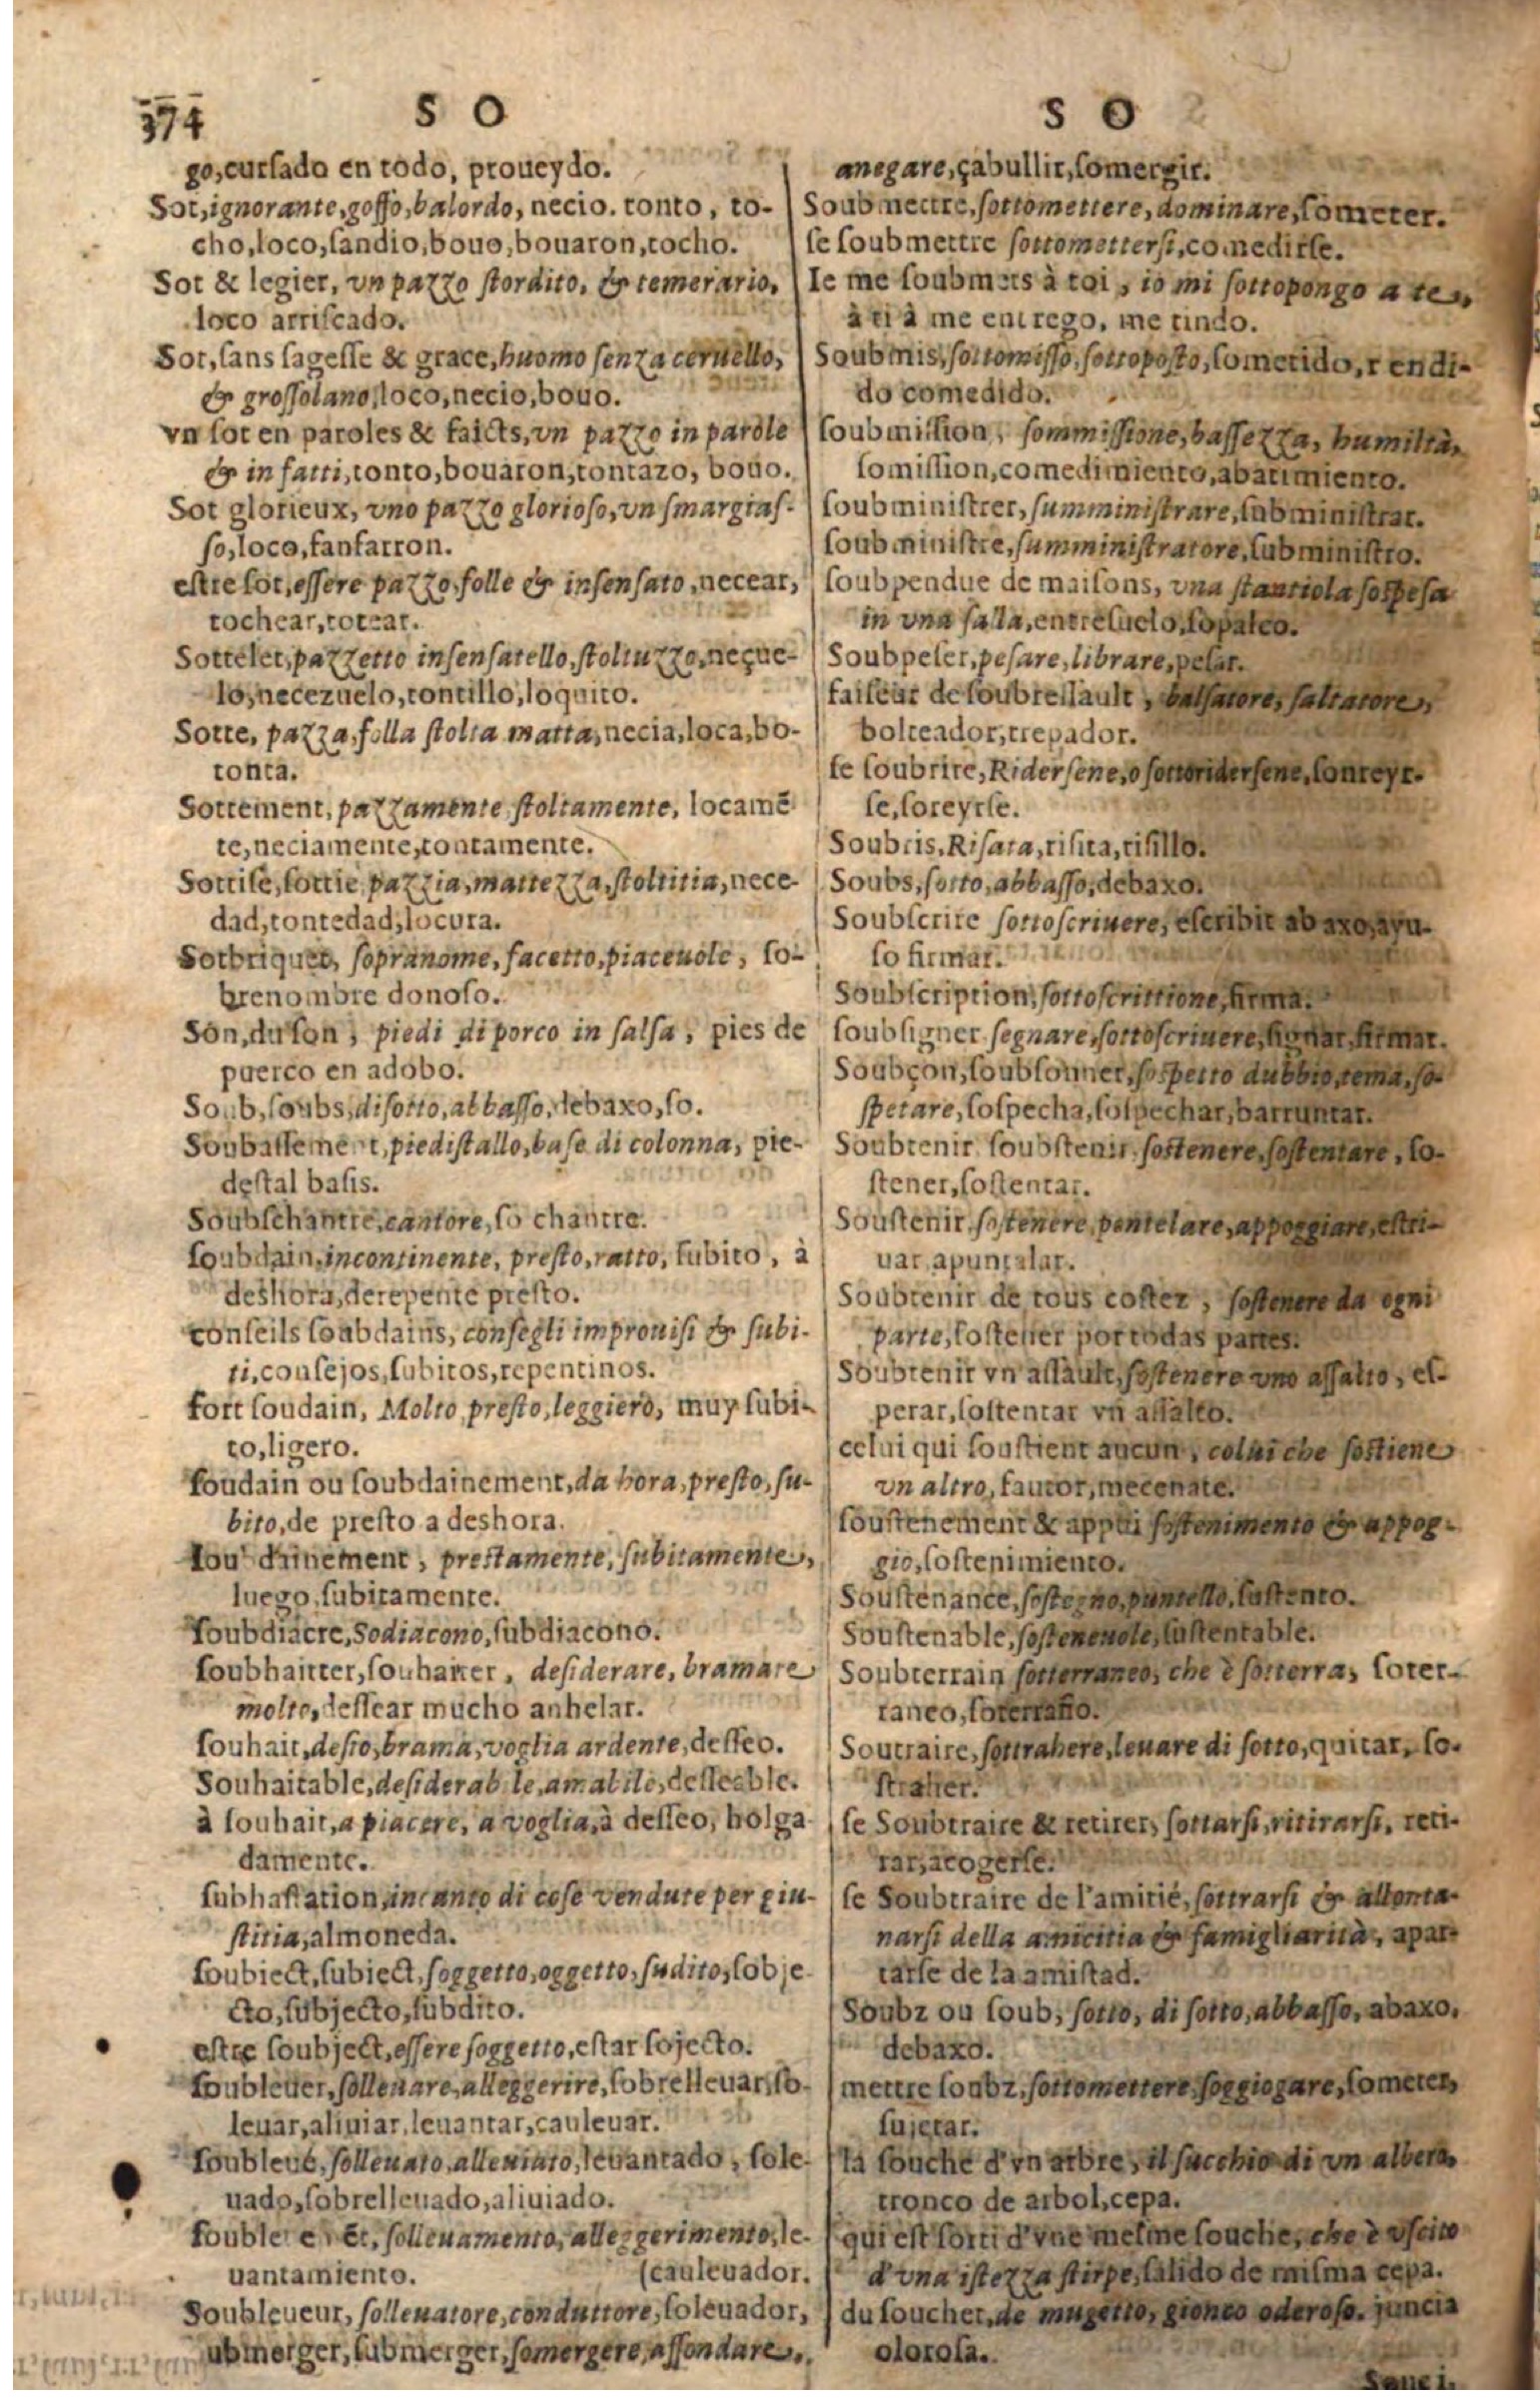 374
S O
go,curſado en todo, proueydo.
Sot,ignorante,goffo,balordo, necio. tonto, to-
cho,loco,ſandio,bouo,bouaron,tocho.
Sot & legier, vn pazzo ſtordito, & temerario,
loco arriſcado.
Sot,ſans ſageſſe & grace,huomo ſenza ceruello,
& groſſolano,loco,necio,bouo.
vn ſot en paroles & faicts,vn pazzo in parole
& in fatti,tonto,bouaron,tontazo, bouo.
Sot glorieux, vno pazzo glorioſo,vn ſmargiaſ-
ſo,loco,fanfarron.
eſtre ſot,eſſere pazzo,folle & inſenſato,necear,
tochear,totear.
Sottelet,pazzetto inſenſatello,ſtoltuzzo,neçue-
lo,necezuelo,tontillo,loquito.
Sotte, pazza,folla ſtolta matta,necia,loca,bo-
tonta.
Sottement,pazzamente ſtoltamente, locamẽ
te,neciamente,tontamente.
Sottiſe,ſottie pazzia,mattezza,ſtoltitia,nece-
dad,tontedad,locura.
Sotbriquet, ſopranome,facetto,piaceuole, ſo-
brenombre donoſo.
Son,du ſon, piedi di porco in ſalſa, pies de
puerco en adobo.
Soub,ſoubs,diſotto,abbaſſo,debaxo,ſo.
Soubaſſement,piediſtallo,baſe di colonna, pie-
deſtal baſis.
Soubſchantre,cantore,ſo chantre.
ſoubdain,incontinente, preſto,ratto, ſubito, à
deshora,derepente preſto.
conſeils ſoubdains, conſegli improuiſi & ſubi-
ti,conſejos,ſubitos,repentinos.
fort ſoudain, Molto preſto,leggiero, muy ſubi-
to,ligero.
ſoudain ou ſoubdainement,da hora,preſto,ſu-
bito,de preſto a deshora.
ſou dainement, preſtamente,ſubitamente,
luego,ſubitamente.
ſoubdiacre,Sodiacono,ſubdiacono.
ſoubhaitter,ſouhaiter, deſiderare,bramare
molto,deſſear mucho anhelar.
ſouhait,deſio,brama,voglia ardente,deſſeo.
Souhaitable,deſiderab le,amabile,deſſeable.
à ſouhait,a piacere, a voglia,à deſſeo, holga-
damente.
ſubhaſtation,incanto di coſe vendute per giu-
ſtitia,almoneda.
ſoubiect,ſubiect,ſoggetto,oggetto,ſudito,ſobje-
cto,ſubjecto,ſubdito.
eſtre ſoubject,eſſere ſoggetto,eſtar ſojecto.
ſoubleuer,ſolleuare,alleggerire,ſobrelleuar,ſo-
leuar,aliuiar,leuantar,cauleuar.
ſoubleué,ſolleuato,alleuiato,leuantado, ſole-
uado,ſobrelleuado,aliuiado.
ſolleuamento,alleggerimento,le-
uantamiento. (cauleuador.
Soubleueur, ſolleuatore,conduttore,ſoleuador,
ubmerger,ſubmerger,ſomergere,affondare,
S O
anegare,çabullir,ſomergir.
Soubmettre,ſottomettere,dominare,ſometer.
ſe ſoubmettre ſottometterſi,comedirſe.
Ie me ſoubmets à toi, io mi ſottopongo a te,
à ti à me entrego, me rindo.
Soubmis,ſottomiſſo,ſottopoſto,ſometido,r endi-
do comedido.
ſoubmiſſion, ſommiſſione,baſſezza, humiltà,
ſomiſſion,comedimiento,abatimiento.
ſoubminiſtrer,ſumminiſtrare,ſubminiſtrar.
ſoubminiſtre,ſumminiſtratore,ſubminiſtro.
ſoubpendue de maiſons, vna ſtantiola ſoſpeſa
in vna ſala,entreſuelo,ſopalco.
Soubpeſer,peſare,librare,peſar.
faiſeur de ſoubreſſault, balſatore, ſaltatore,
bolteador,trepador.
ſe ſoubrire,Riderſene,o ſottoriderſene,ſonreyr-
ſe,ſoreyrſe.
Soubris,Riſata,riſita,riſillo.
Soubs,ſotto,abbaſſo,debaxo.
Soubſcrire ſottoſcriuere, eſcribir ab axo,ayu-
ſo firmar.
Soubſcription,ſottoſcrittione,firma.
ſoubſigner ſegnare,ſottoſcriuere,ſignar,firmar.
Soubçon,ſoubſonner,ſoſpetto dubbio,tema,ſo-
ſpetare,ſoſpecha,ſoſpechar,barruntar.
Soubtenir ſoubſtenir,ſoſtenere,ſoſtentare, ſo-
ſtener,ſoſtentar.
Souſtenir,ſoſtenere,pontelare,appoggiare,eſtri-
uar,apuntalar.
Soubtenir de tous coſtez, ſoſtenere da ogni
parte,ſoſtener por todas partes.
Soubtenir vn aſſault,ſoſtenere vno aſſalto, eſ-
perar,ſoſtentar vn aſſalto.
celui qui ſouſtient aucun, colui che ſoſtiene
vn altro, fautor,mecenate.
ſouſtenement & appui ſoſtenimento & appog-
gio,ſoſtenimiento.
Souſtenance,ſoſtegno,puntello,ſuſtento.
Souſtenable,ſoſteneuole,ſuſtentable.
Soubterrain ſotterraneo, che è ſotterra, ſoter-
raneo,ſoterraño.
Soutraire,ſottrahere,leuare di ſotto,quitar, ſo-
ſtraher.
ſe Soubtraire & retirer, ſottarſi,ritirarſi, reti-
rar,acogerſe.
ſe Soubtraire de l'amitié,ſottrarſi & allonta-
narſi della amicitia & famigliarità, apar-
tarſe de la amiſtad.
Soubz ou ſoub, ſotto, di ſotto,abbaſſo, abaxo,
debaxo.
mettre ſoubz,ſottomettere,ſoggiogare,ſometer,
ſujetar.
la ſouche d'vn arbre, il ſucchio di vn albero,
tronco de arbol,cepa.
qui eſt ſorti d'vne meſme ſouche, che è vſcito
d'vna iſtezza ſtirpe,ſalido de miſma cepa.
du ſouchet,de mugetto, gionco oderoſo. juncia
oloroſa.